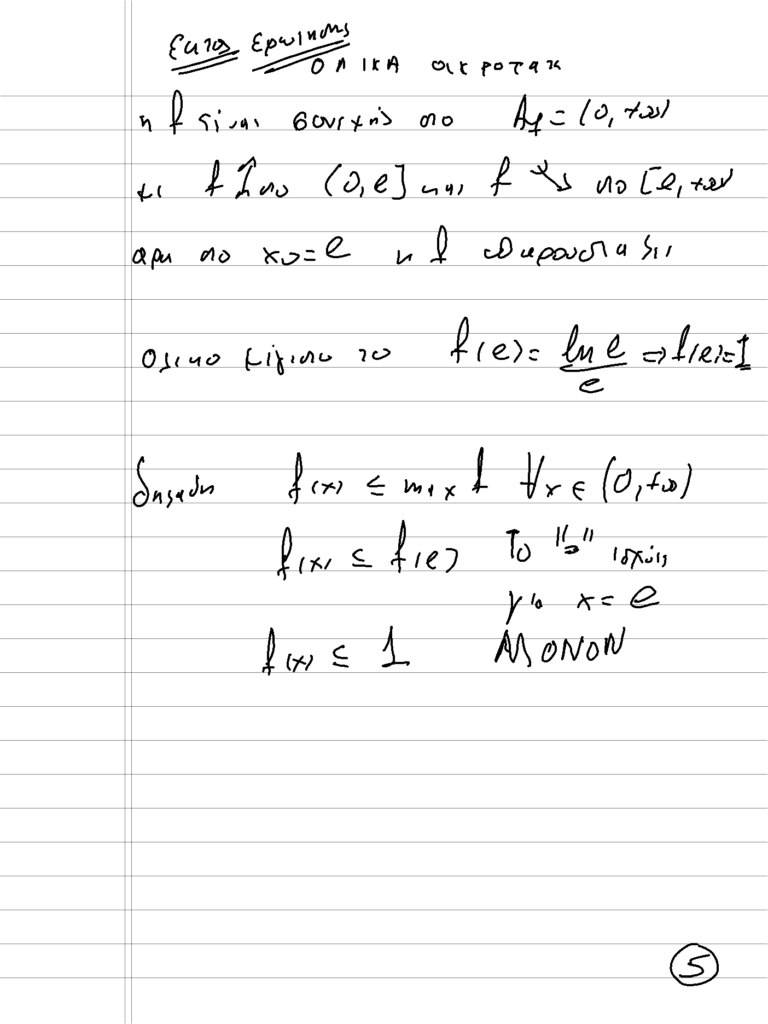 Εκτος Ερωτησης
ΟΛΙΚΑ ακροτατα
η f είναι συνεχής στο Af = (0, +∞)
με f ↑ στο (0, e] και f ↘ στο [e, +∞)
αρα στο x0 = e η f παρουσιαζει
ολικο μέγιστο το f(e) = ln e / e ⇒ f(e) = 1
δηλαδη f(x) ≤ max f ∀x ∈ (0, +∞)
f(x) ≤ f(e) Το "=" ισχύει
για x = e
f(x) ≤ 1 ΜΟΝΟΝ
5